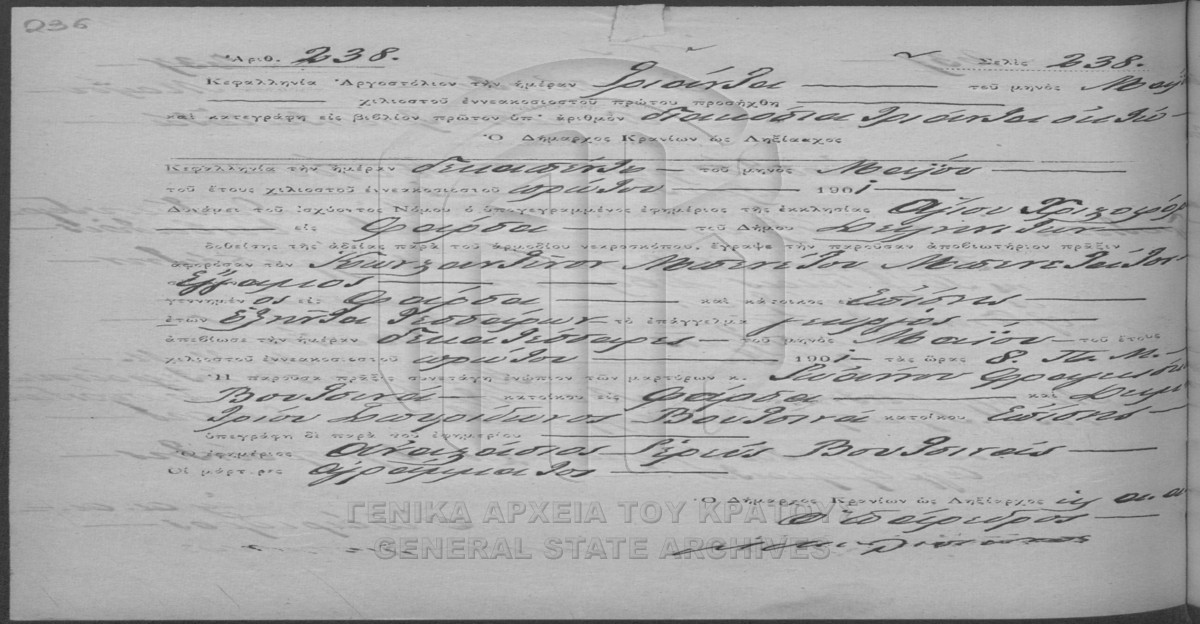 236
Ἀριθ. 238. Σελὶς 238.
Κεφαλληνία Ἀργοστόλιον τὴν ἡμέραν τριάντα τοῦ μηνὸς Μαΐου
χιλιοστοῦ ἐννεακοσιοστοῦ πρώτου προσήχθη
καὶ κατεγράφη εἰς βιβλίον πρῶτον ὑπ' ἀριθμὸν διακόσια τριάντα ὀκτώ
Ὁ Δήμαρχος Κρανίων ὡς Ληξίαρχος
Κεφαλληνία τὴν ἡμέραν δεκαπέντε τοῦ μηνὸς Μαΐου
τοῦ ἔτους χιλιοστοῦ ἐννεακοσιοστοῦ πρώτου 1901
Δυνάμει τοῦ ἰσχύοντος Νόμου ὁ ὑπογεγραμμένος ἐφημέριος τῆς ἐκκλησίας Ἁγίου
εἰς Φάρσα τοῦ Δήμου
δοθείσης τῆς ἀδείας παρὰ τοῦ ἁρμοδίου νεκροσκόπου, ἔγραψε τὴν παροῦσαν ἀποβιωτήριον πρᾶξιν
ἀφορῶσαν τὸν Κωνσταντῖνον Μπενέτου Μπενετάτον
Ἔγγαμος
γεννημένος εἰς Φάρσα καὶ κάτοικος Ἐπίσης
ἐτῶν ἑξῆντα τεσσάρων τὸ ἐπάγγελμα γεωργός
ἀπεβίωσε τὴν ἡμέραν δεκατέσσαρες τοῦ μηνὸς Μαΐου τοῦ ἔτους
χιλιοστοῦ ἐννεακοσιοστοῦ πρώτου 1901 τὰς ὥρας 8. π.μ.
Ἡ παροῦσα πρᾶξις συνετάχη ἐνώπιον τῶν μαρτύρων κ. Ἰωάννου
Βουτσινᾶ κατοίκου εἰς Φάρσα καὶ Δημη
τρίου Σπυρίδωνος Βουτσινᾶ κατοίκου Ἐπίσης
ὑπεγράφη δὲ παρὰ τοῦ ἐφημερίου
Ὁ ἐφημέριος Ἀναστάσιος Ἱερεὺς Βουτσινᾶς
Οἱ μάρτυρες ἀγράμματοι
Ὁ Δήμαρχος Κρανίων ὡς Ληξίαρχος
Ὁ πάρεδρος
ΓΕΝΙΚΑ ΑΡΧΕΙΑ ΤΟΥ ΚΡΑΤΟΥΣ
GENERAL STATE ARCHIVES